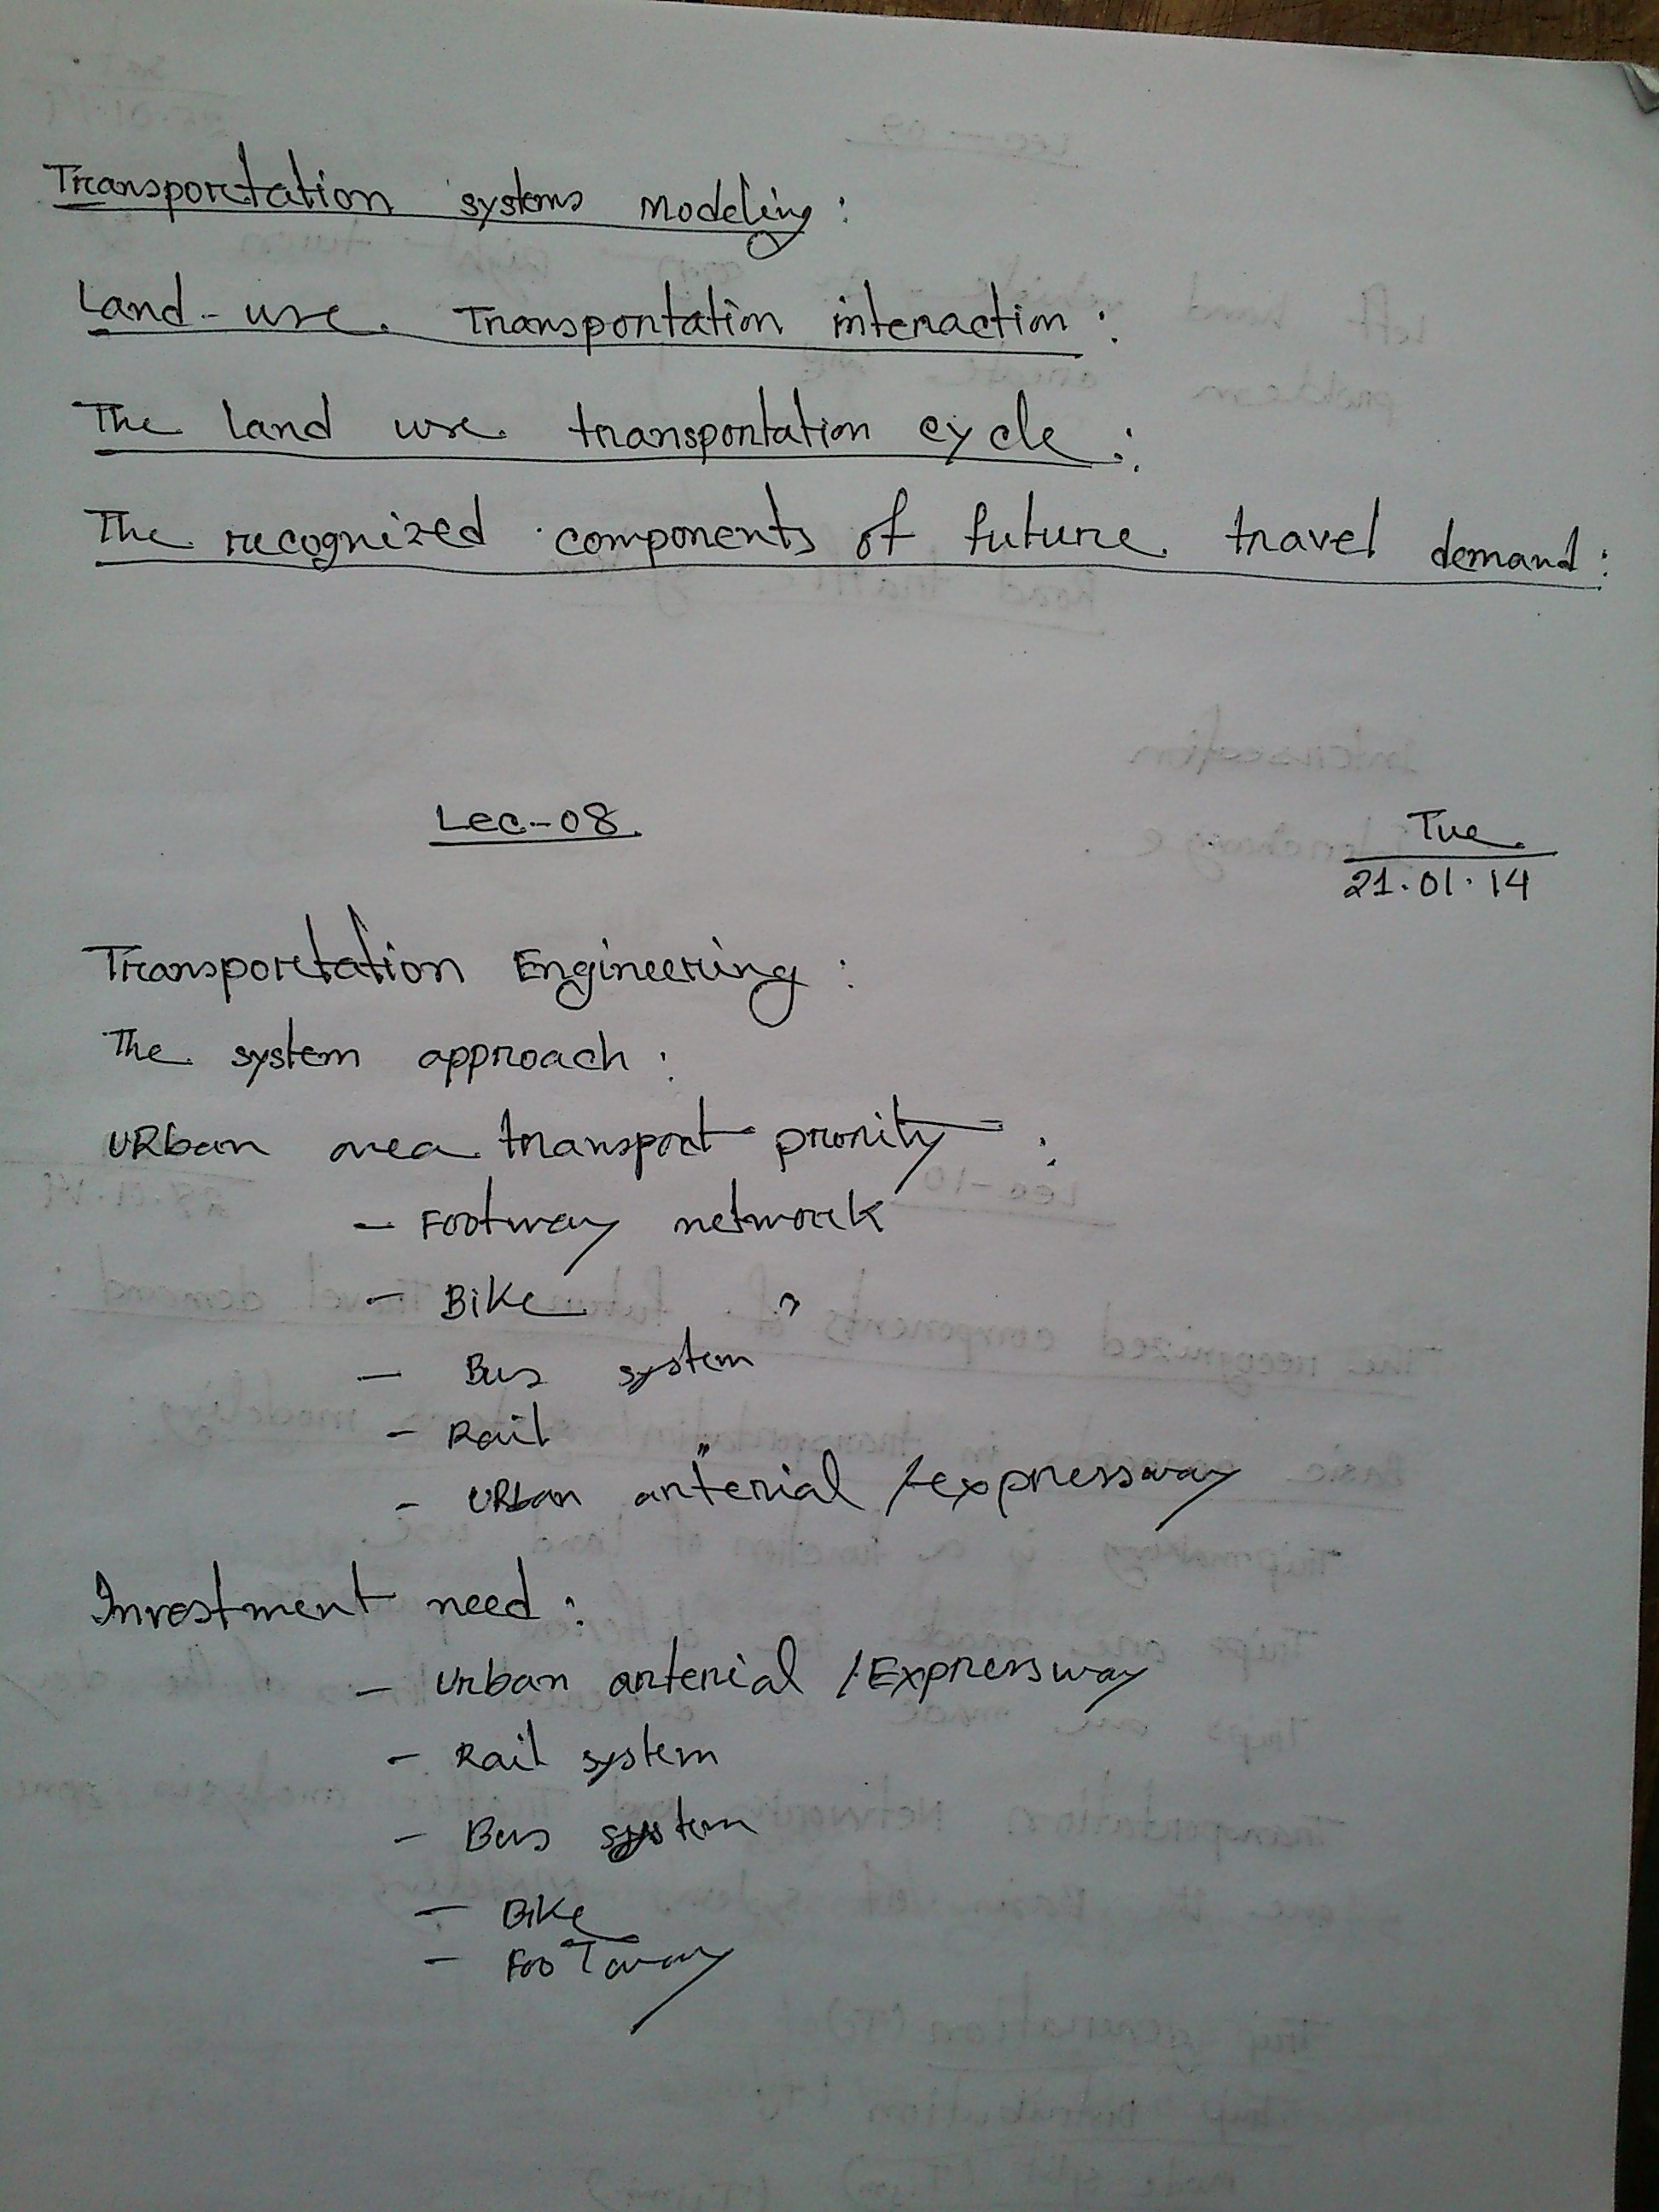 Transportation systems Modeling:
Land-use Transportation interaction:
The land use transportation cycle:
The recognized components of future travel demand:
Lec-08
Tue
21.01.14
Transportation Engineering:
The system approach:
URban area transport priority:
- Footway network
- Bike "
- Bus system
- Rail "
- URban arterial / expressway
Investment need:
- Urban arterial / Expressway
- Rail system
- Bus system
- Bike
- Footway